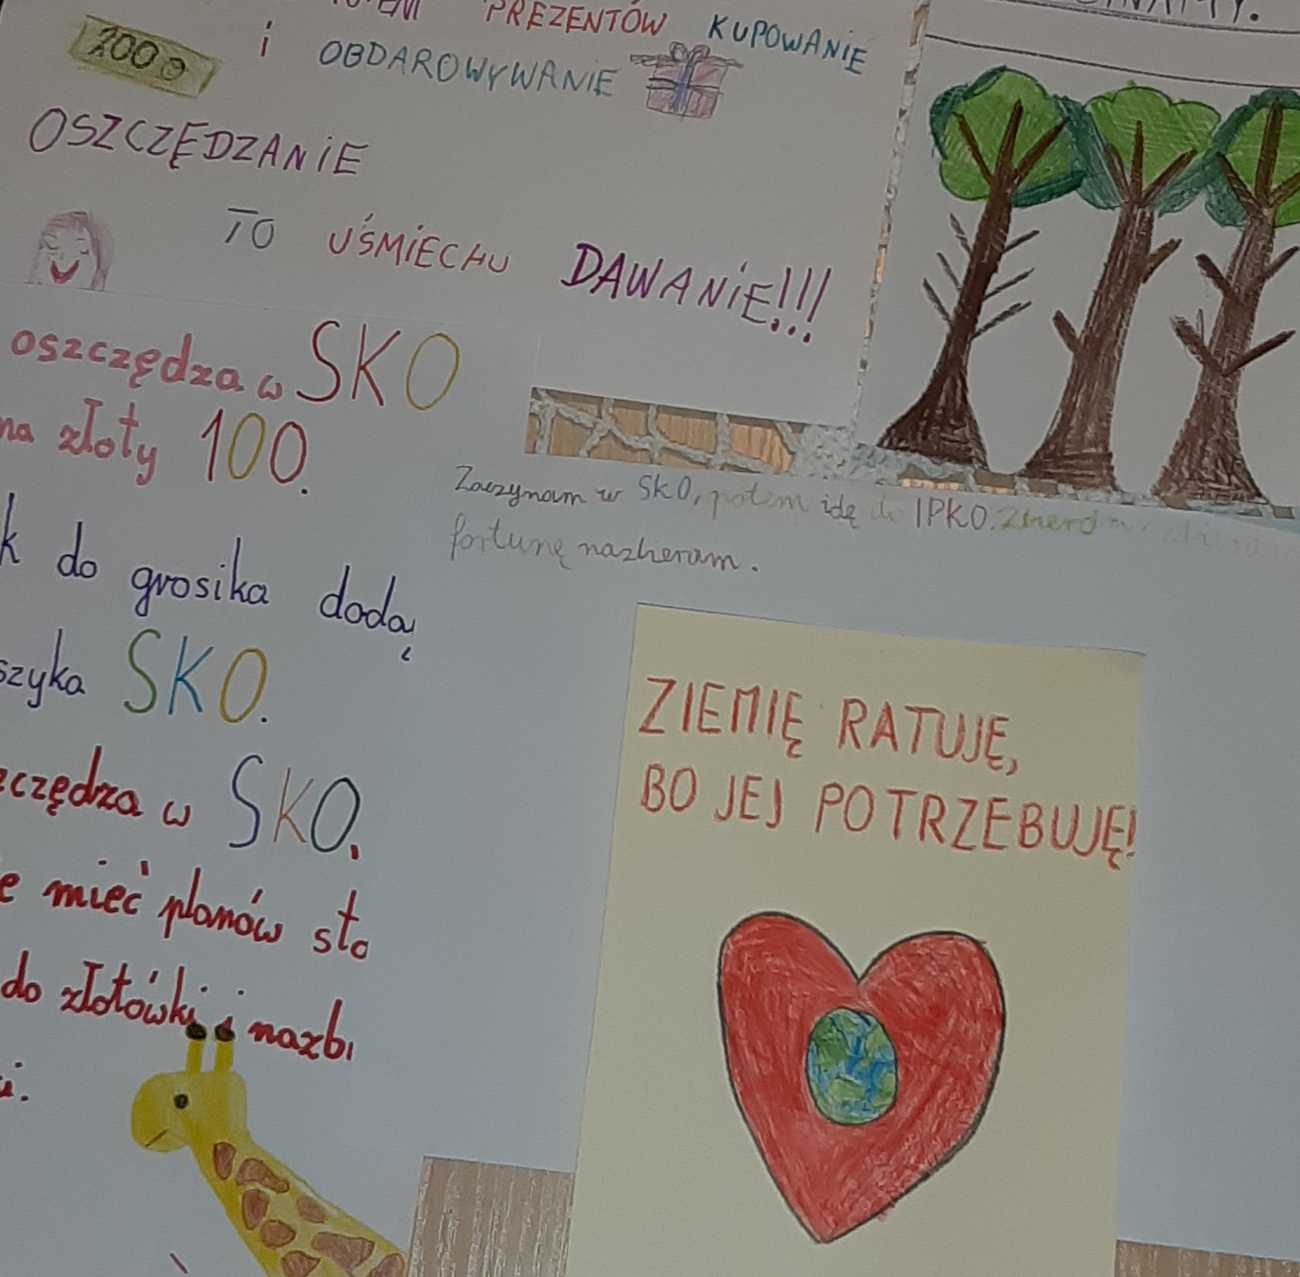 PREZENTÓW KUPOWANIE
200
i OBDAROWYWANIE
OSZCZĘDZANIE
TO UŚMIECHU DAWANIE!!!
oszczędza w SKO
na złoty 100.
do grosika dodą
SKO.
w SKO.
mieć planów sto
do złotówki i nazbi
Zaczynam w SKO, potem idę do IPKO.
fortunę nazbieram.
ZIEMIĘ RATUJĘ,
BO JEJ POTRZEBUJĘ!